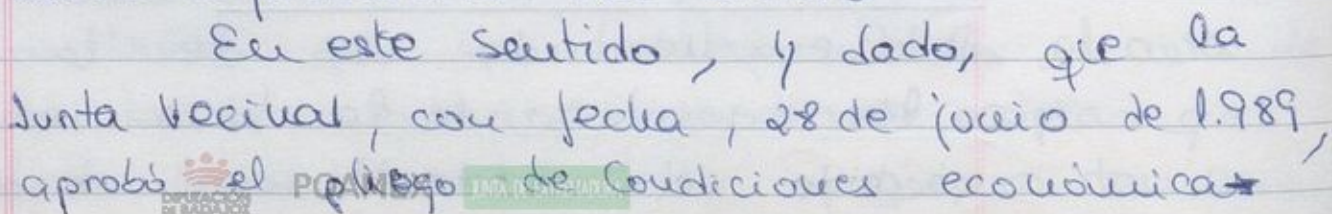 En este sentido, y dado, que la
Junta Vecinal, con fecha, 28 de junio de 1.989,
aprobó el pliego de Condiciones económicas
DIPUTACIÓN DE BADAJOZ